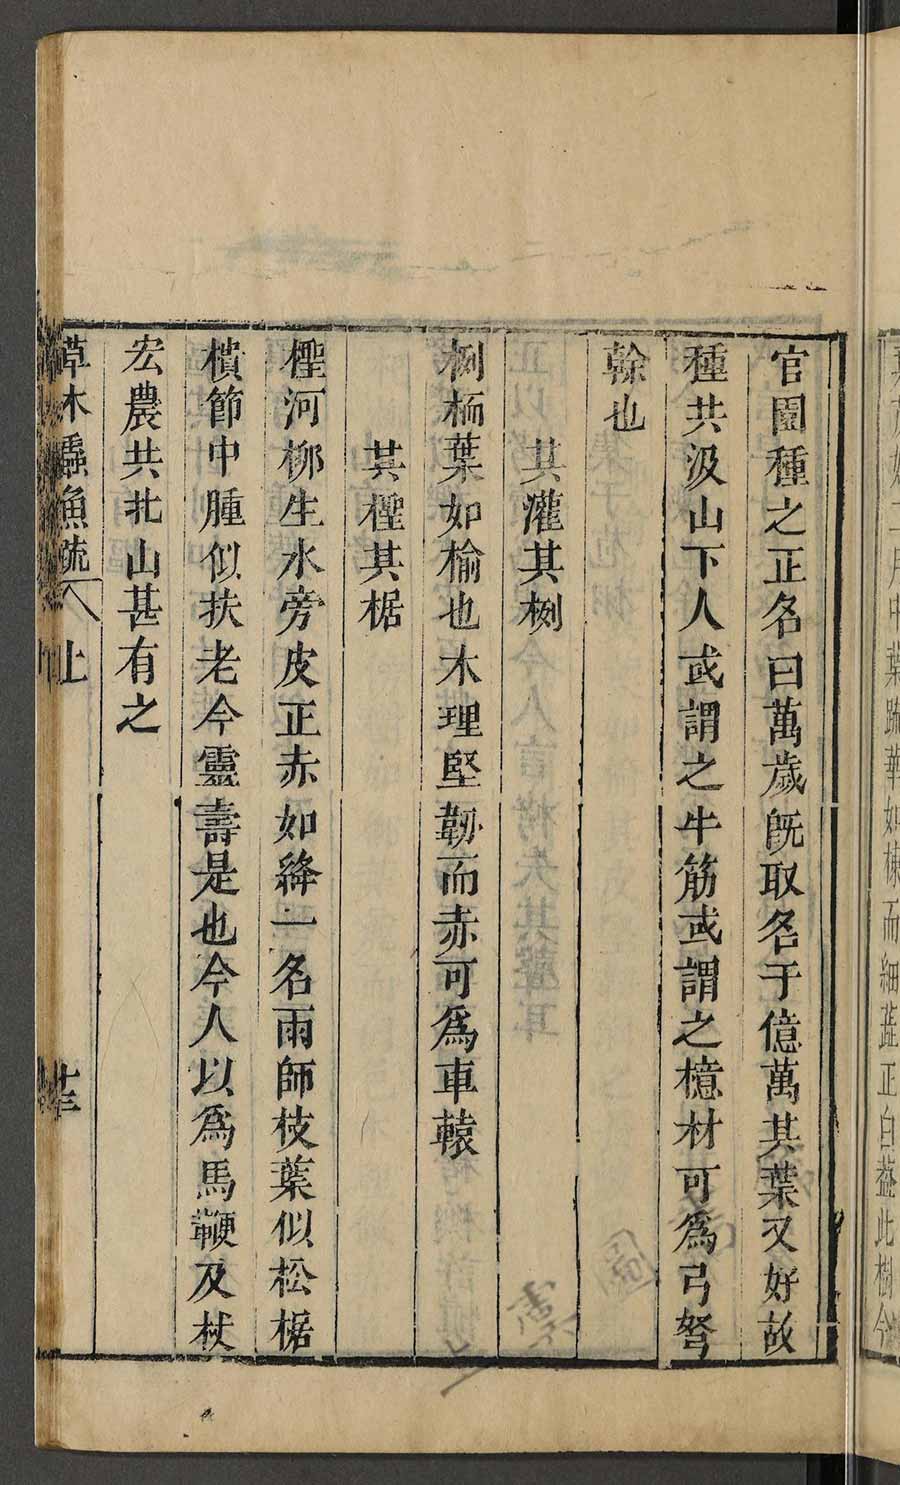 官園種之正名曰萬歲既取名于億萬其葉又好故
種共汲山下人或謂之牛筋或謂之檍材可爲弓弩
榦也
其灌其栵
栵栭葉如榆也木理堅韌而赤可爲車轅
其檉其椐
檉河柳生水旁皮正赤如絳一名雨師枝葉似松椐
樻節中腫似扶老今靈壽是也今人以爲馬鞭及杖
宏農共北山甚有之
草木蟲魚疏 上